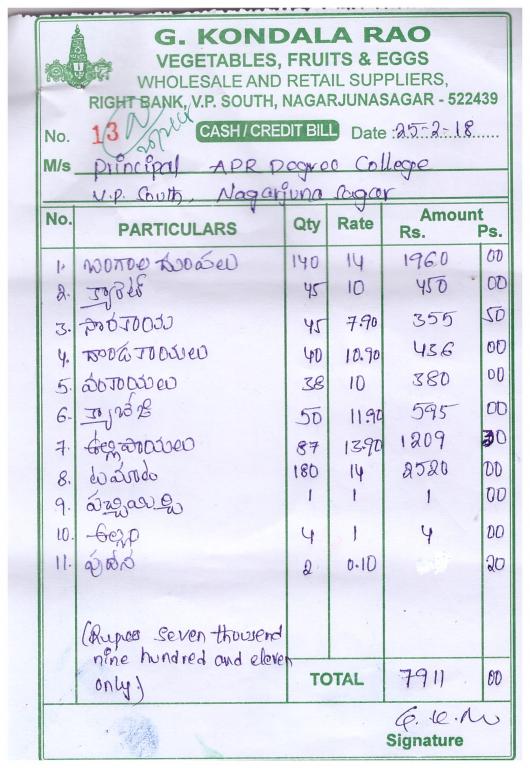 G. KONDALA RAO
VEGETABLES, FRUITS & EGGS
WHOLESALE AND RETAIL SUPPLIERS,
RIGHT BANK, V.P. SOUTH, NAGARJUNASAGAR - 522439
No. 13 CASH / CREDIT BILL Date : 25-2-18
M/s Principal APR Degree College
V.P. South, Nagarjuna Sagar
No. PARTICULARS Qty Rate Amount
Rs. Ps.
1. బంగాల దుంపలు 140 14 1960 00
2. క్యారెట్ 45 10 450 00
3. సొరకాయ 45 7.90 355 50
4. దొండకాయలు 40 10.90 436 00
5. వంకాయలు 38 10 380 00
6. క్యాబేజి 50 11.90 595 00
7. ఉల్లిపాయలు 87 13.90 1209 30
8. టమాటం 180 14 2520 00
9. పచ్చిమిర్చి 1 1 1 00
10. అల్లం 4 1 4 00
11. పుదీన 2 0.10 20
(Rupees seven thousand
nine hundred and eleven
only.)
TOTAL 7911 00
Signature